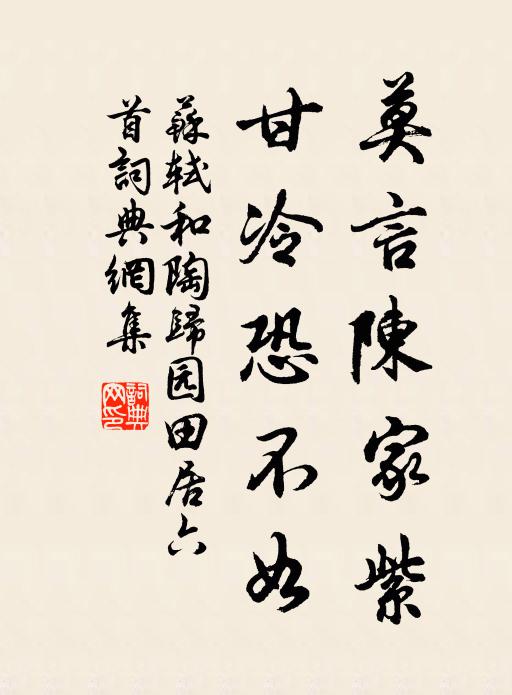 莫言陳家紫
甘冷恐不如
蘇軾和陶歸园田居六
首詞典網集
詞典网印